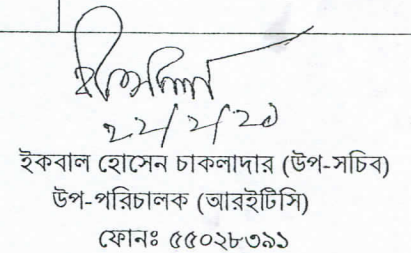 ইকবাল হোসেন চাকলাদার (উপ-সচিব)
উপ-পরিচালক (আরইটিসি)
ফোনঃ ৫৫০২৮৩৯১